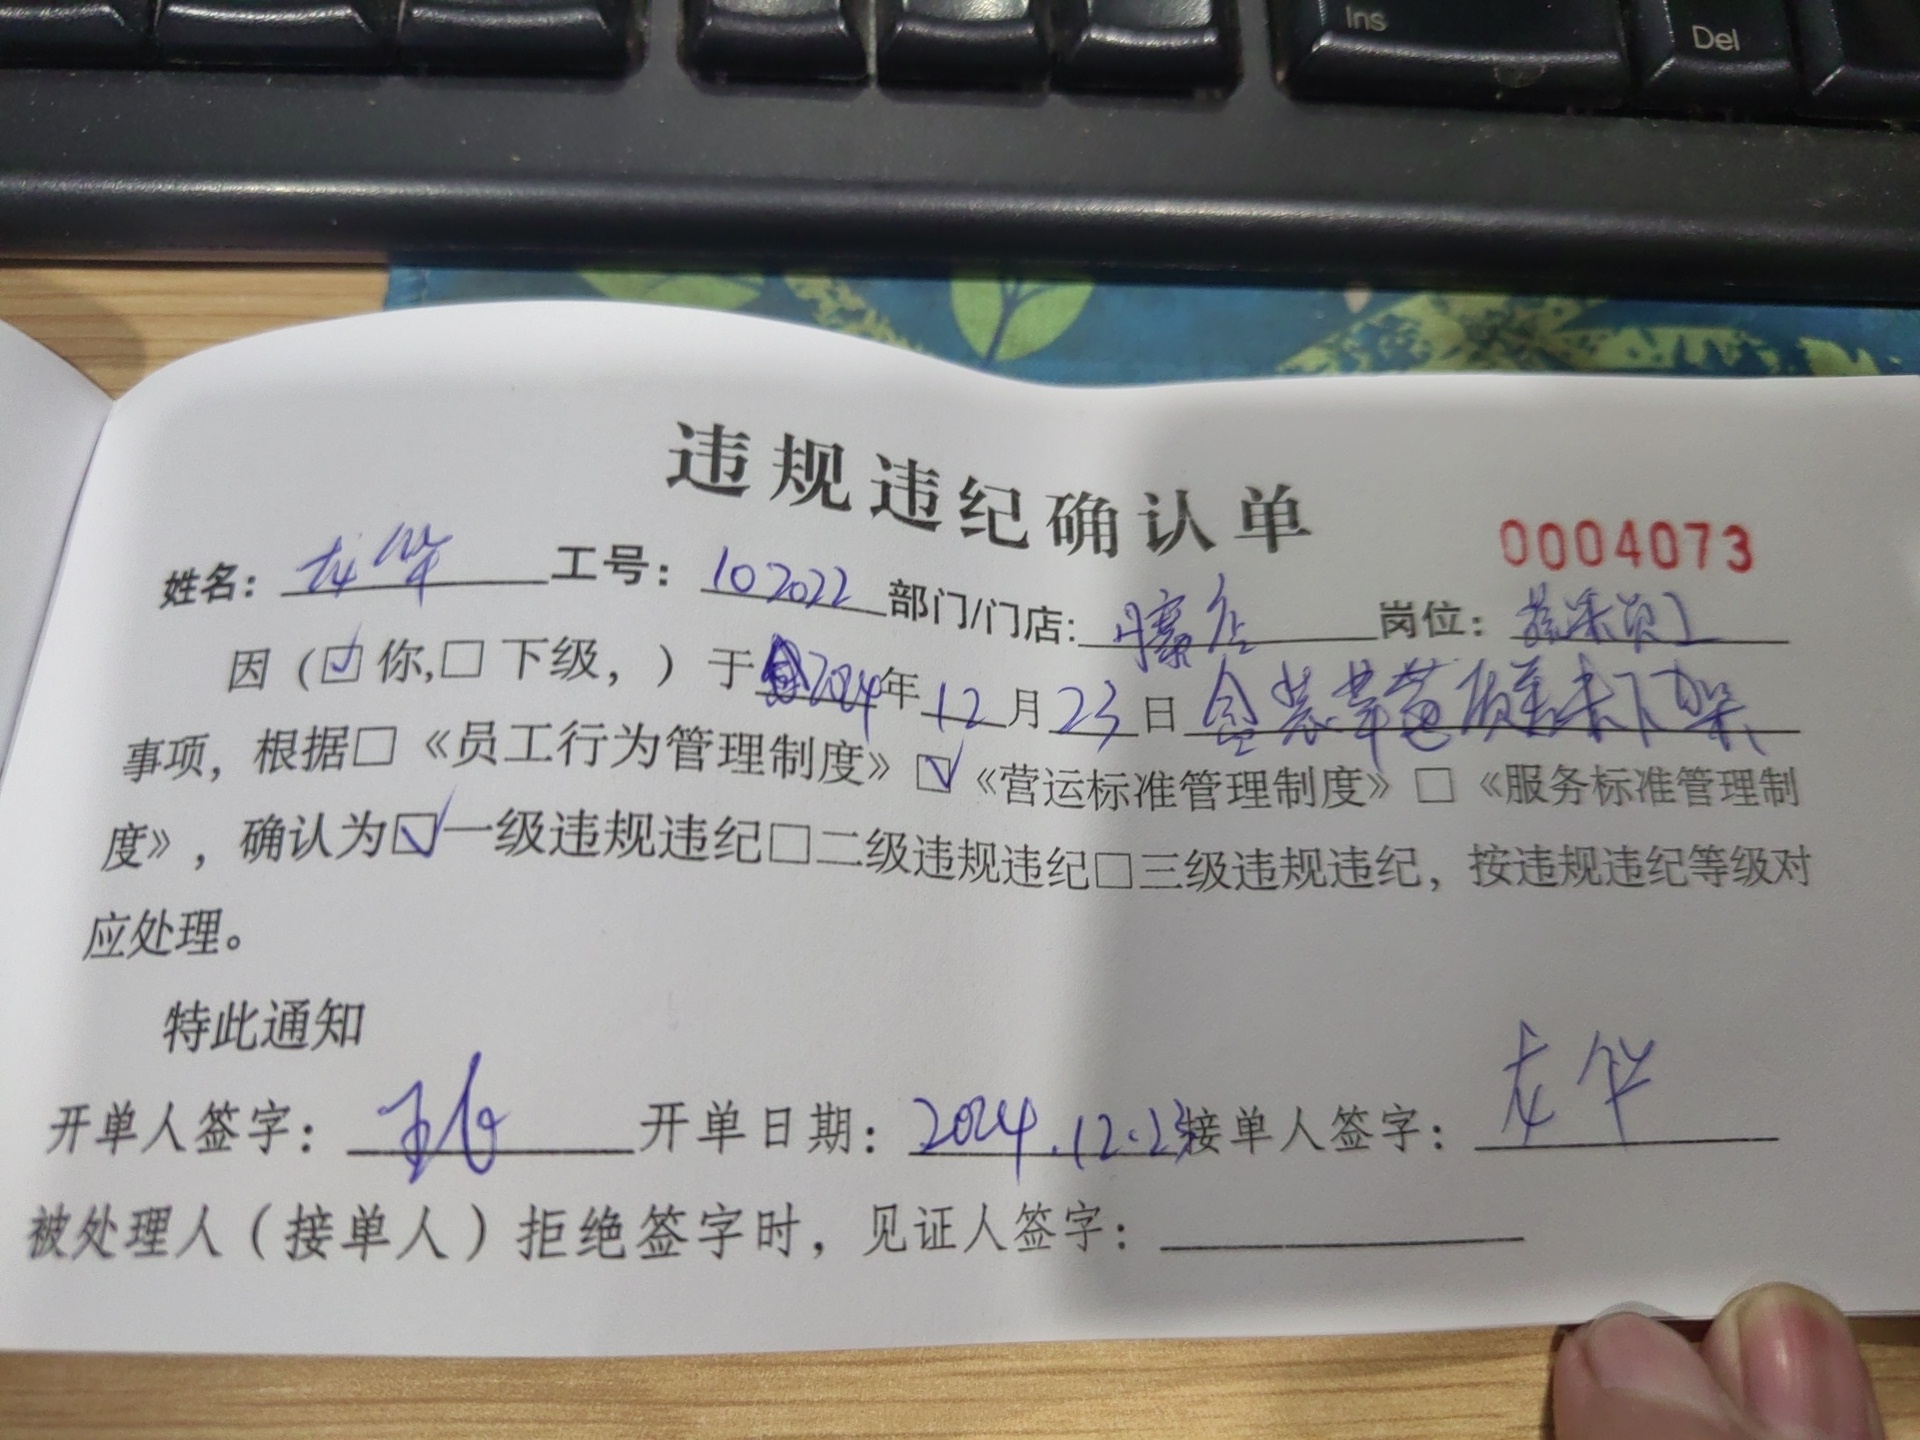 Ins
Del
违规违纪确认单
0004073
姓名：龙华 工号：102022 部门/门店: 店 岗位：蔬果员工
因（☑你,□下级，）于2024年12月23日盒装草莓质差未下架
事项，根据□《员工行为管理制度》☑《营运标准管理制度》□《服务标准管理制
度》，确认为☑一级违规违纪□二级违规违纪□三级违规违纪，按违规违纪等级对
应处理。
特此通知
开单人签字： 开单日期：2024.12.23接单人签字：龙华
被处理人（接单人）拒绝签字时，见证人签字：